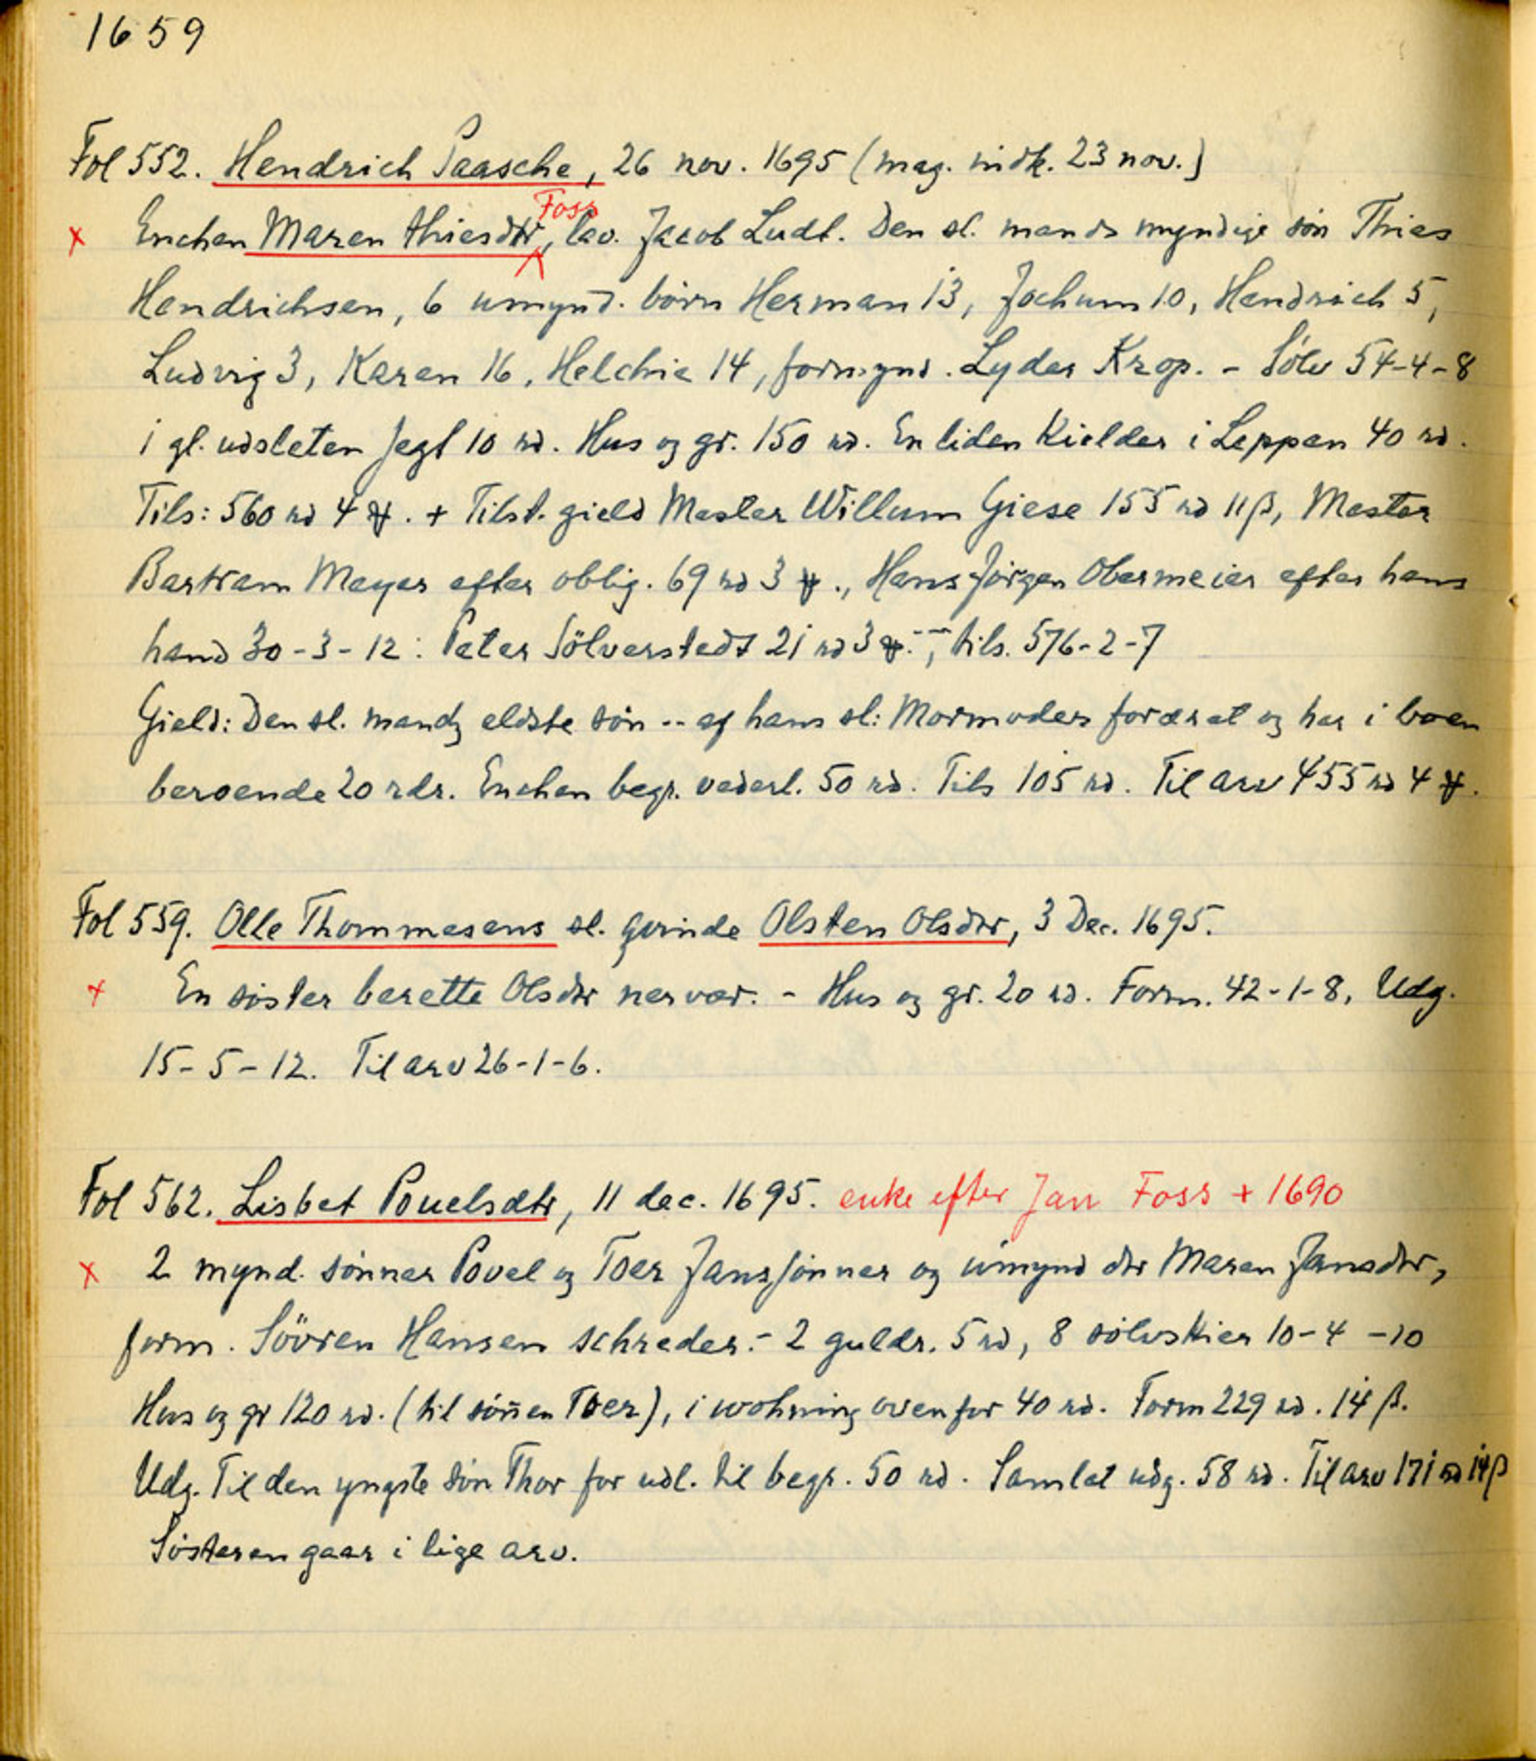 1659
Fol 552. Hendrich Paasche, 26 nov. 1695 (mag. indk. 23 nov.)
Foss
x Enchen Maren thiesdtr, lav. Jacob Ludt. Den sl. mands myndige søn Thies
Hendrichsen, 6 umynd. børn Herman 13, Jochum 10, Hendrich 5,
Ludvig 3, Karen 16, Helchie 14, formynd. Lyder Krop. - Sølv 54-4-8
i gl. udsleten Jegt 10 rd. Hus og gr. 150 rd. En liden Kielder i Leppen 40 rd.
Tils: 560 rd 4 ₰. + Tilst. gield Mester Willum Giese 155 rd 11 β, Mester
Bartram Meyer efter oblig. 69 rd 3 ₰., Hans Jörgen Obermeier efter hans
hand 30-3-12: Peter Sölverstedt 21 rd 3 ₰. --, tils. 576-2-7
Gield: Den sl. mandz eldste søn -- af hans sl: Mormoders foræret og har i boen
beroende 20 rdr. Enchen begr. vederl. 50 rd. Tils 105 rd. Til arv 455 rd 4 ₰.
Fol 559. Olle Thommesens sl. qvinde Olsten Olsdtr, 3 Dec. 1695.
x En søster berette Olsdtr nervær. - Hus og gr. 20 rd. Form. 42-1-8, Udg.
15-5-12. Til arv 26-1-6.
Fol 562. Lisbet Pouelsdtr, 11 dec. 1695. enke efter Jan Foss + 1690
x 2 mynd. sønner Povel og Toer Janssønner og umynd dtr Maren Jansdtr,
form. Sövren Hansen schreder.- 2 guldr. 5 rd, 8 sølvskier 10-4-10
Hus og gr 120 rd. (til sønnen Toer), i wohning ovenfor 40 rd. Form 229 rd. 14 β.
Udg. Til den yngste søn Thor for udl. til begr. 50 rd. Samlet udg. 58 rd. Til arv 171 rd 14 β
Søsteren gaar i lige arv.